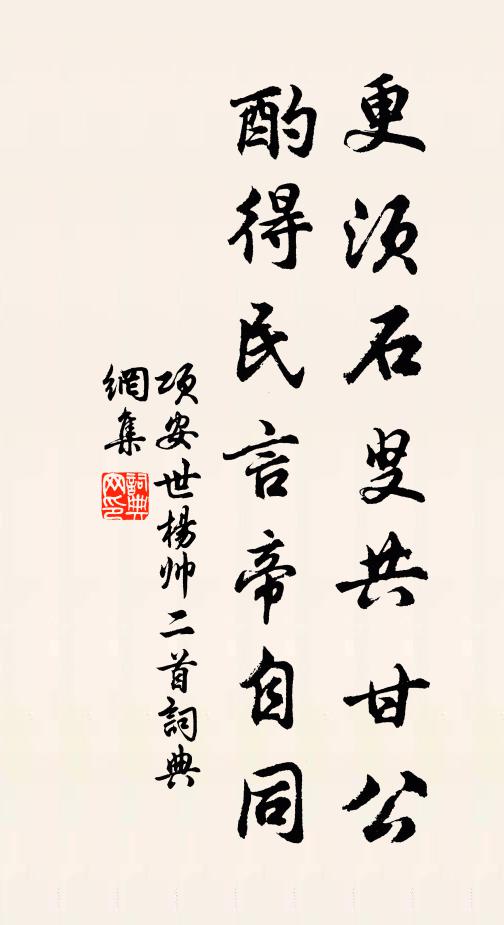 更須石叟共甘公
酌得民言帝自同
項安世楊帅二首詞典
網集
詞典
网印